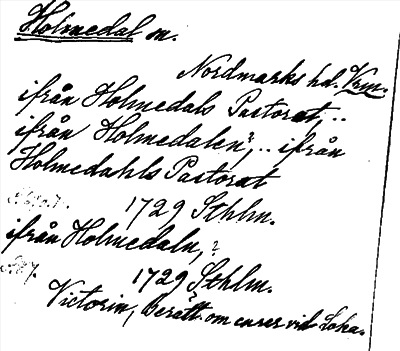 Holmedal sn.
Nordmarks hd. Vrm.
ifrån Holmedals Pastorat, ..
ifrån Holmedalen?, .. ifrån
Holmedahls Pastorat
1729 Sthlm.
ifrån Holmedaln, ?
1729 Sthlm.
Victorin, Berätt. om curer vid Loka.